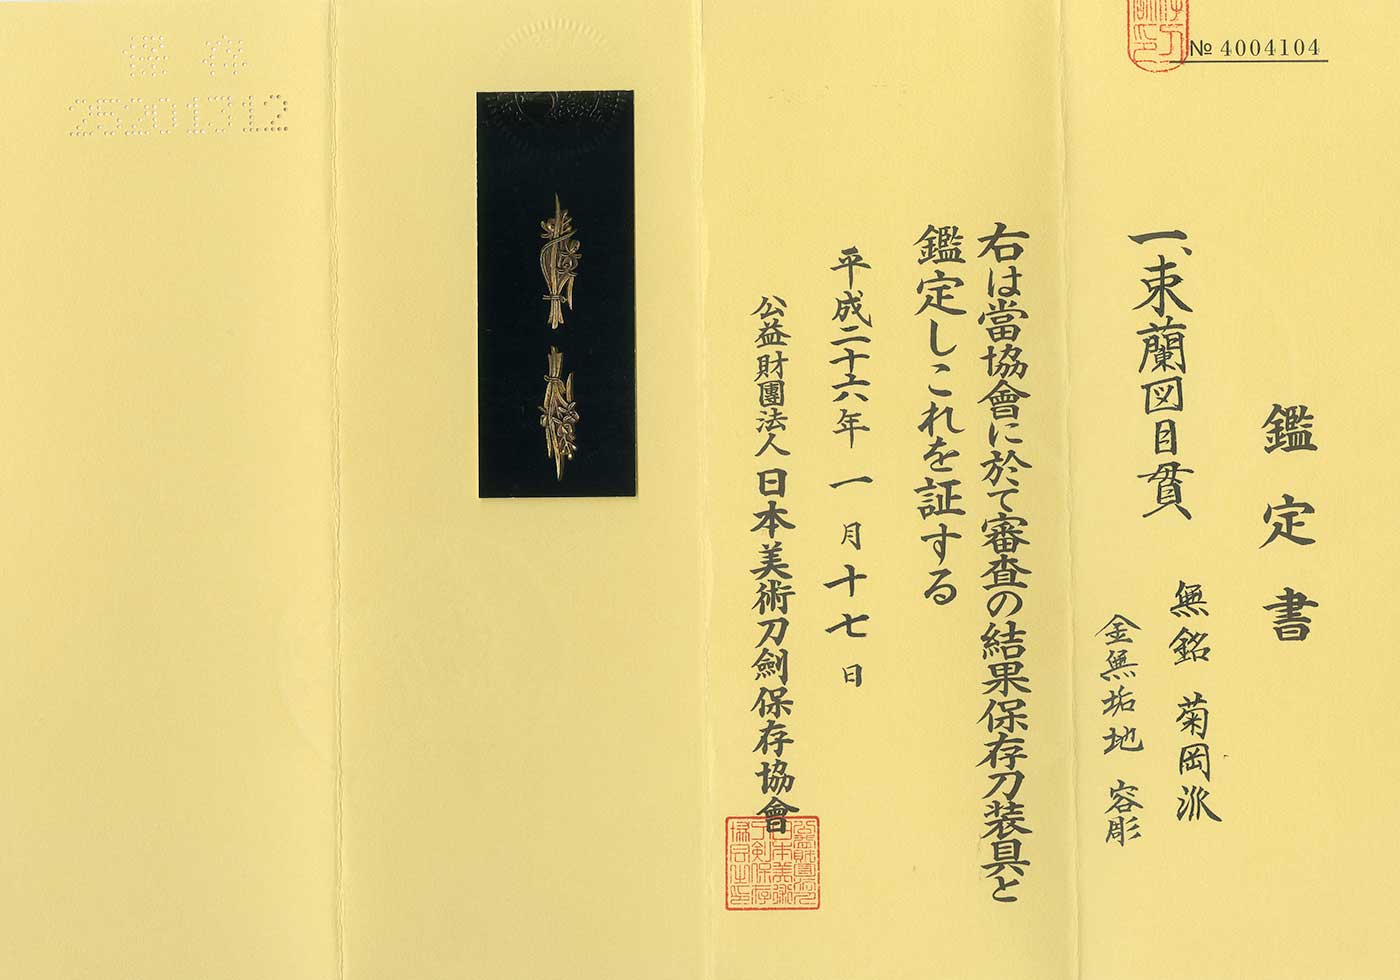 № 4004104
鑑定書
一、束蘭図目貫
無銘 菊岡派
金無垢地 容彫
右は當協會に於て審査の結果保存刀装具と
鑑定しこれを証する
平成二十六年一月十七日
公益財團法人日本美術刀劍保存協會
保存
25201312